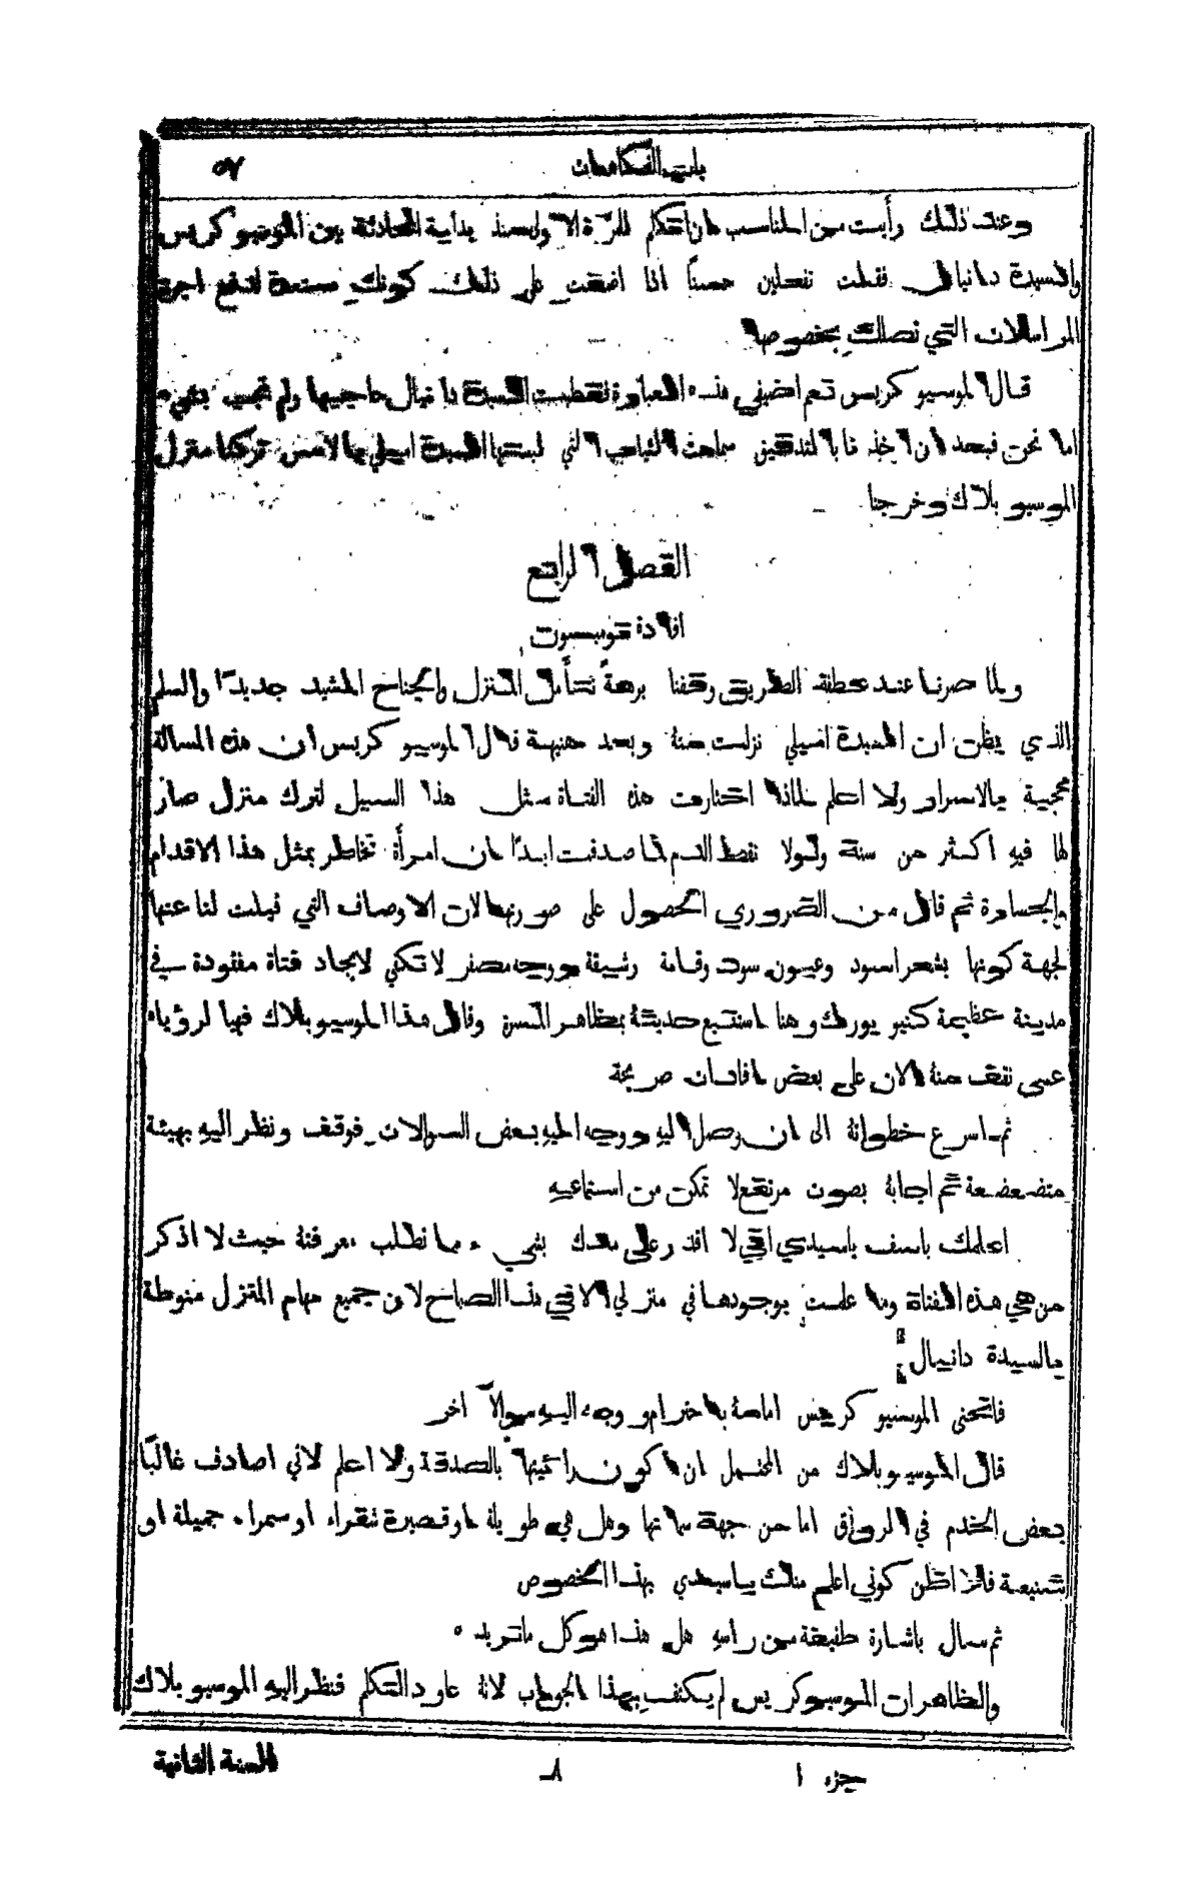 ديوان الفكاهات ٥٧
وعند ذلك رأيت من المناسب ان اتكلم للمرّة الاولى منذ بداية المحادثة بين الموسيو كريس
والسيدة دانيال فقلت تفعلين حسنًا اذا اضفتِ على ذلك كونكِ مستعدة لدفع اجرة
المراسلات التي تصلكِ بخصوصها
قال الموسيو كريس نعم اضيفي هذه العبارة فقطبت السيدة دانيال حاجبيها ولم تجب بشيء
اما نحن فبعد ان اخذنا بالتدقيق صفات الثياب التي لبستها السيدة اميلي بالامس تركنا منزل
الموسيو بلاك وخرجنا
الفصل الرابع
افادة
ولما صرنا عند عطفة الطريق وقفنا برهةً نتأمل المنزل والجناح المشيد جديدًا والسلم
الذي يظن ان السيدة اميلي نزلت منهُ وبعد هنيهة قال الموسيو كريس ان هذه المسالة
محجبة بالاسرار ولا اعلم لماذا اختارت هذه الفتاة مثل هذا السبيل لترك منزل صار
لها فيهِ اكثر من سنة ولولا نقط الدم لما صدقت ابدًا ان امرأة تخاطر بمثل هذا الاقدام
والجسارة ثم قال من الضروري الحصول على صورتها لان الاوصاف التي قيلت لنا عنها
لجهة كونها بشعر اسود وعيون سود وقامة رشيقة ووجه مصفر لا تكفي لايجاد فتاة مفقودة في
مدينة عظيمة كنيو يورك وهنا استتبع حديثهُ بمظاهر المسرة وقال هذا الموسيو بلاك فهيا لرؤياه
عسى نقف منهُ الان على بعض افادات صريحة
ثم اسرع خطواتهُ الى ان وصل اليهِ ووجه اليهِ بعض السوالات فوقف ونظر اليهِ بهيئة
متضعضعة ثم اجابهُ بصوت مرتفع لا تمكن من استماعهِ
اعلمك باسف ياسيدي اني لا اقدر على مدك بشيء مما تطلب معرفتهُ حيث لا اذكر
من هي هذه الفتاة وما علمت بوجودها في منزلي الا في هذا الصباح لان جميع مهام المنزل منوطة
بالسيدة دانيال
فانحنى الموسيو كريس امامهُ باحترام ووجه اليهِ سوالًا آخر
قال الموسيو بلاك من المحتمل ان اكون رايتها بالصدفة ولا اعلم لاني اصادف غالبًا
بعض الخدم في الرواق اما من جهة سماتها وهل هي طويلة او قصيرة شقراء او سمراء جميلة او
شنيعة فلا اظن كوني اعلم منك ياسيدي بهذا الخصوص
ثم سال باشارة طفيفة من راسهِ هل هذا هو كل ما تريده
والظاهر ان الموسيو كريس لم يكتفِ بهذا الجواب لانهُ عاود التكلم فنظر اليهِ الموسيو بلاك
جزء ١ ٨ السنة الثانية